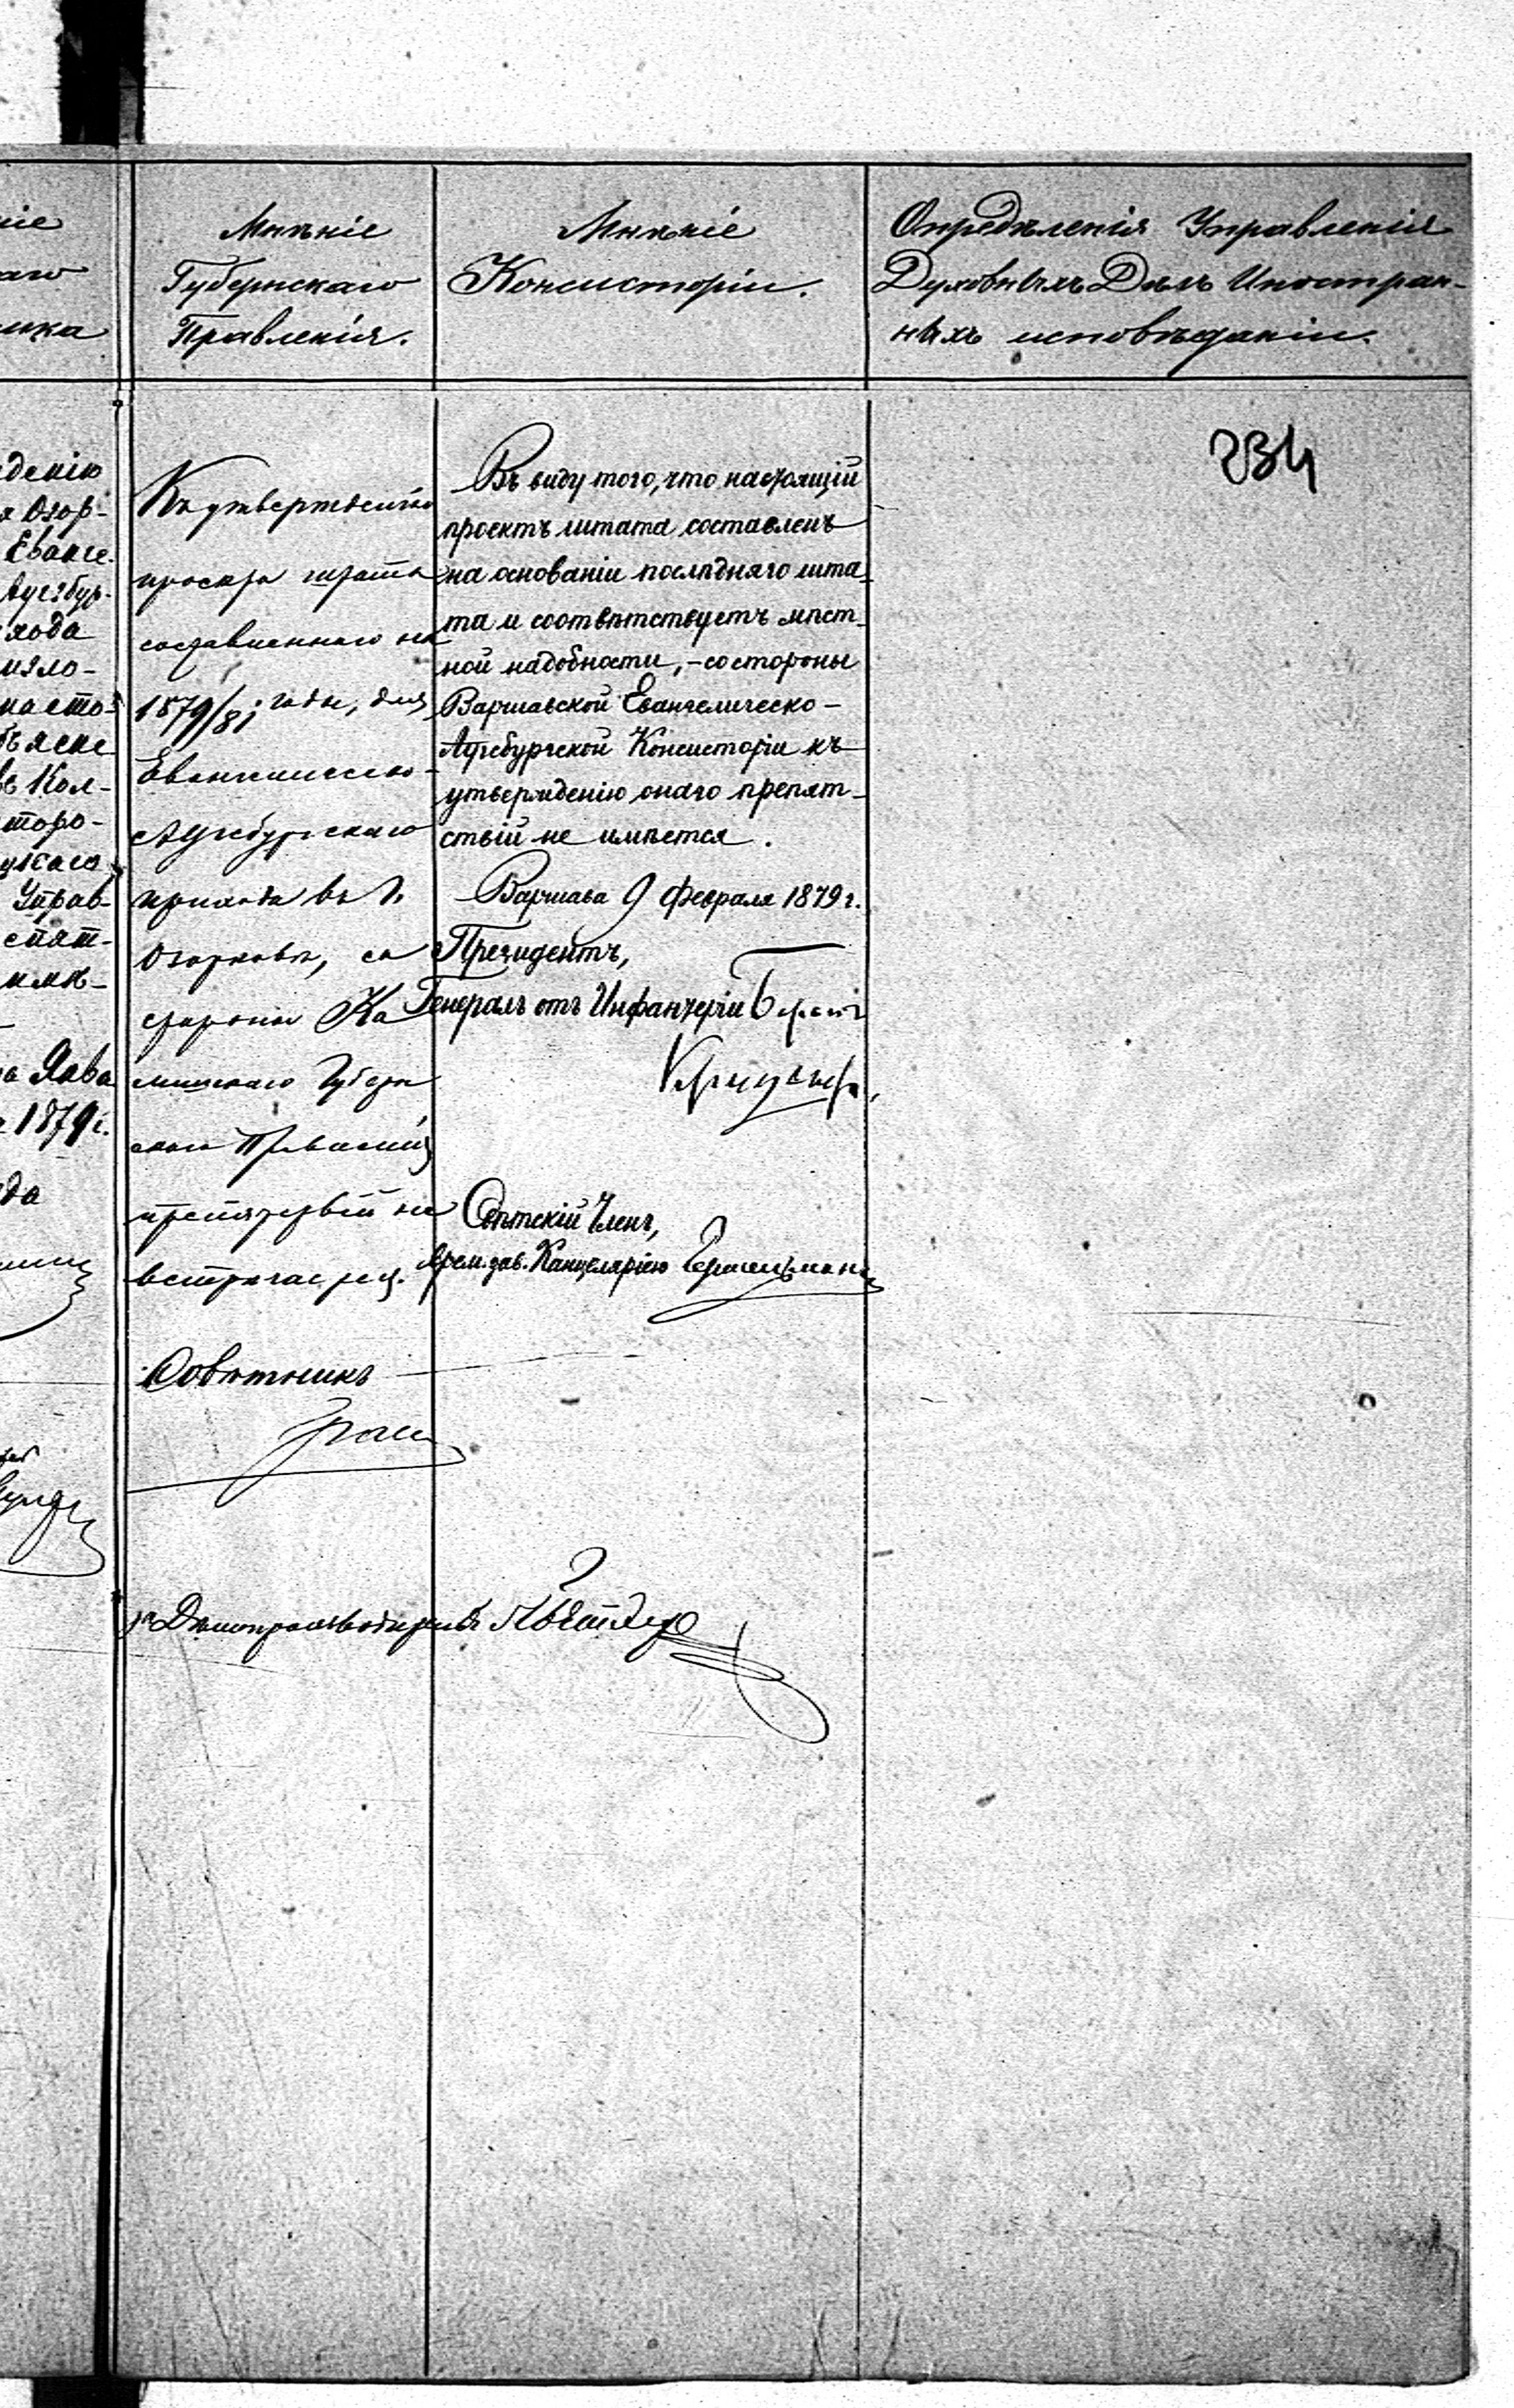 ніе
аго
ика
Мнѣніе
Губернскаго
Правленія.
Мнѣніе
Консисторіи.
Опредѣленія Управленія
Духовныхъ Дѣлъ Иностран-
ныхъ исповѣданіи.
234
денію
Озор-
Еванге.
Аугсбур-
хода
изло-
насто-
Кал-
торо-
Управ-
епят-
имѣ-
Янва
1879 г.
да
Къ утвержденію
проекта штата
составленнаго на
1879/81 годы, для
Евангелическо-
Аугсбургскаго
прихода въ г.
Озорковѣ, со
стороны Ка
лишскаго Губерн
скаго Правленія
препятствій не
встрѣчается.
Совѣтникъ
Дѣлопроизводитель
Въ виду того, что настоящій
проектъ штата составленъ
на основаніи послѣдняго шта-
та и соотвѣтствуетъ мѣст-
ной надобности, - со стороны
Варшавской Евангелическо-
Аугсбургской Консисторіи къ
утвержденію онаго препят-
ствій не имѣется.
Варшава 9 Февраля 1879 г.
Президентъ,
Генералъ отъ Инфантеріи Баронъ
Криднеръ.
Свѣтскій Членъ,
Врем. зав. Канцеляріею